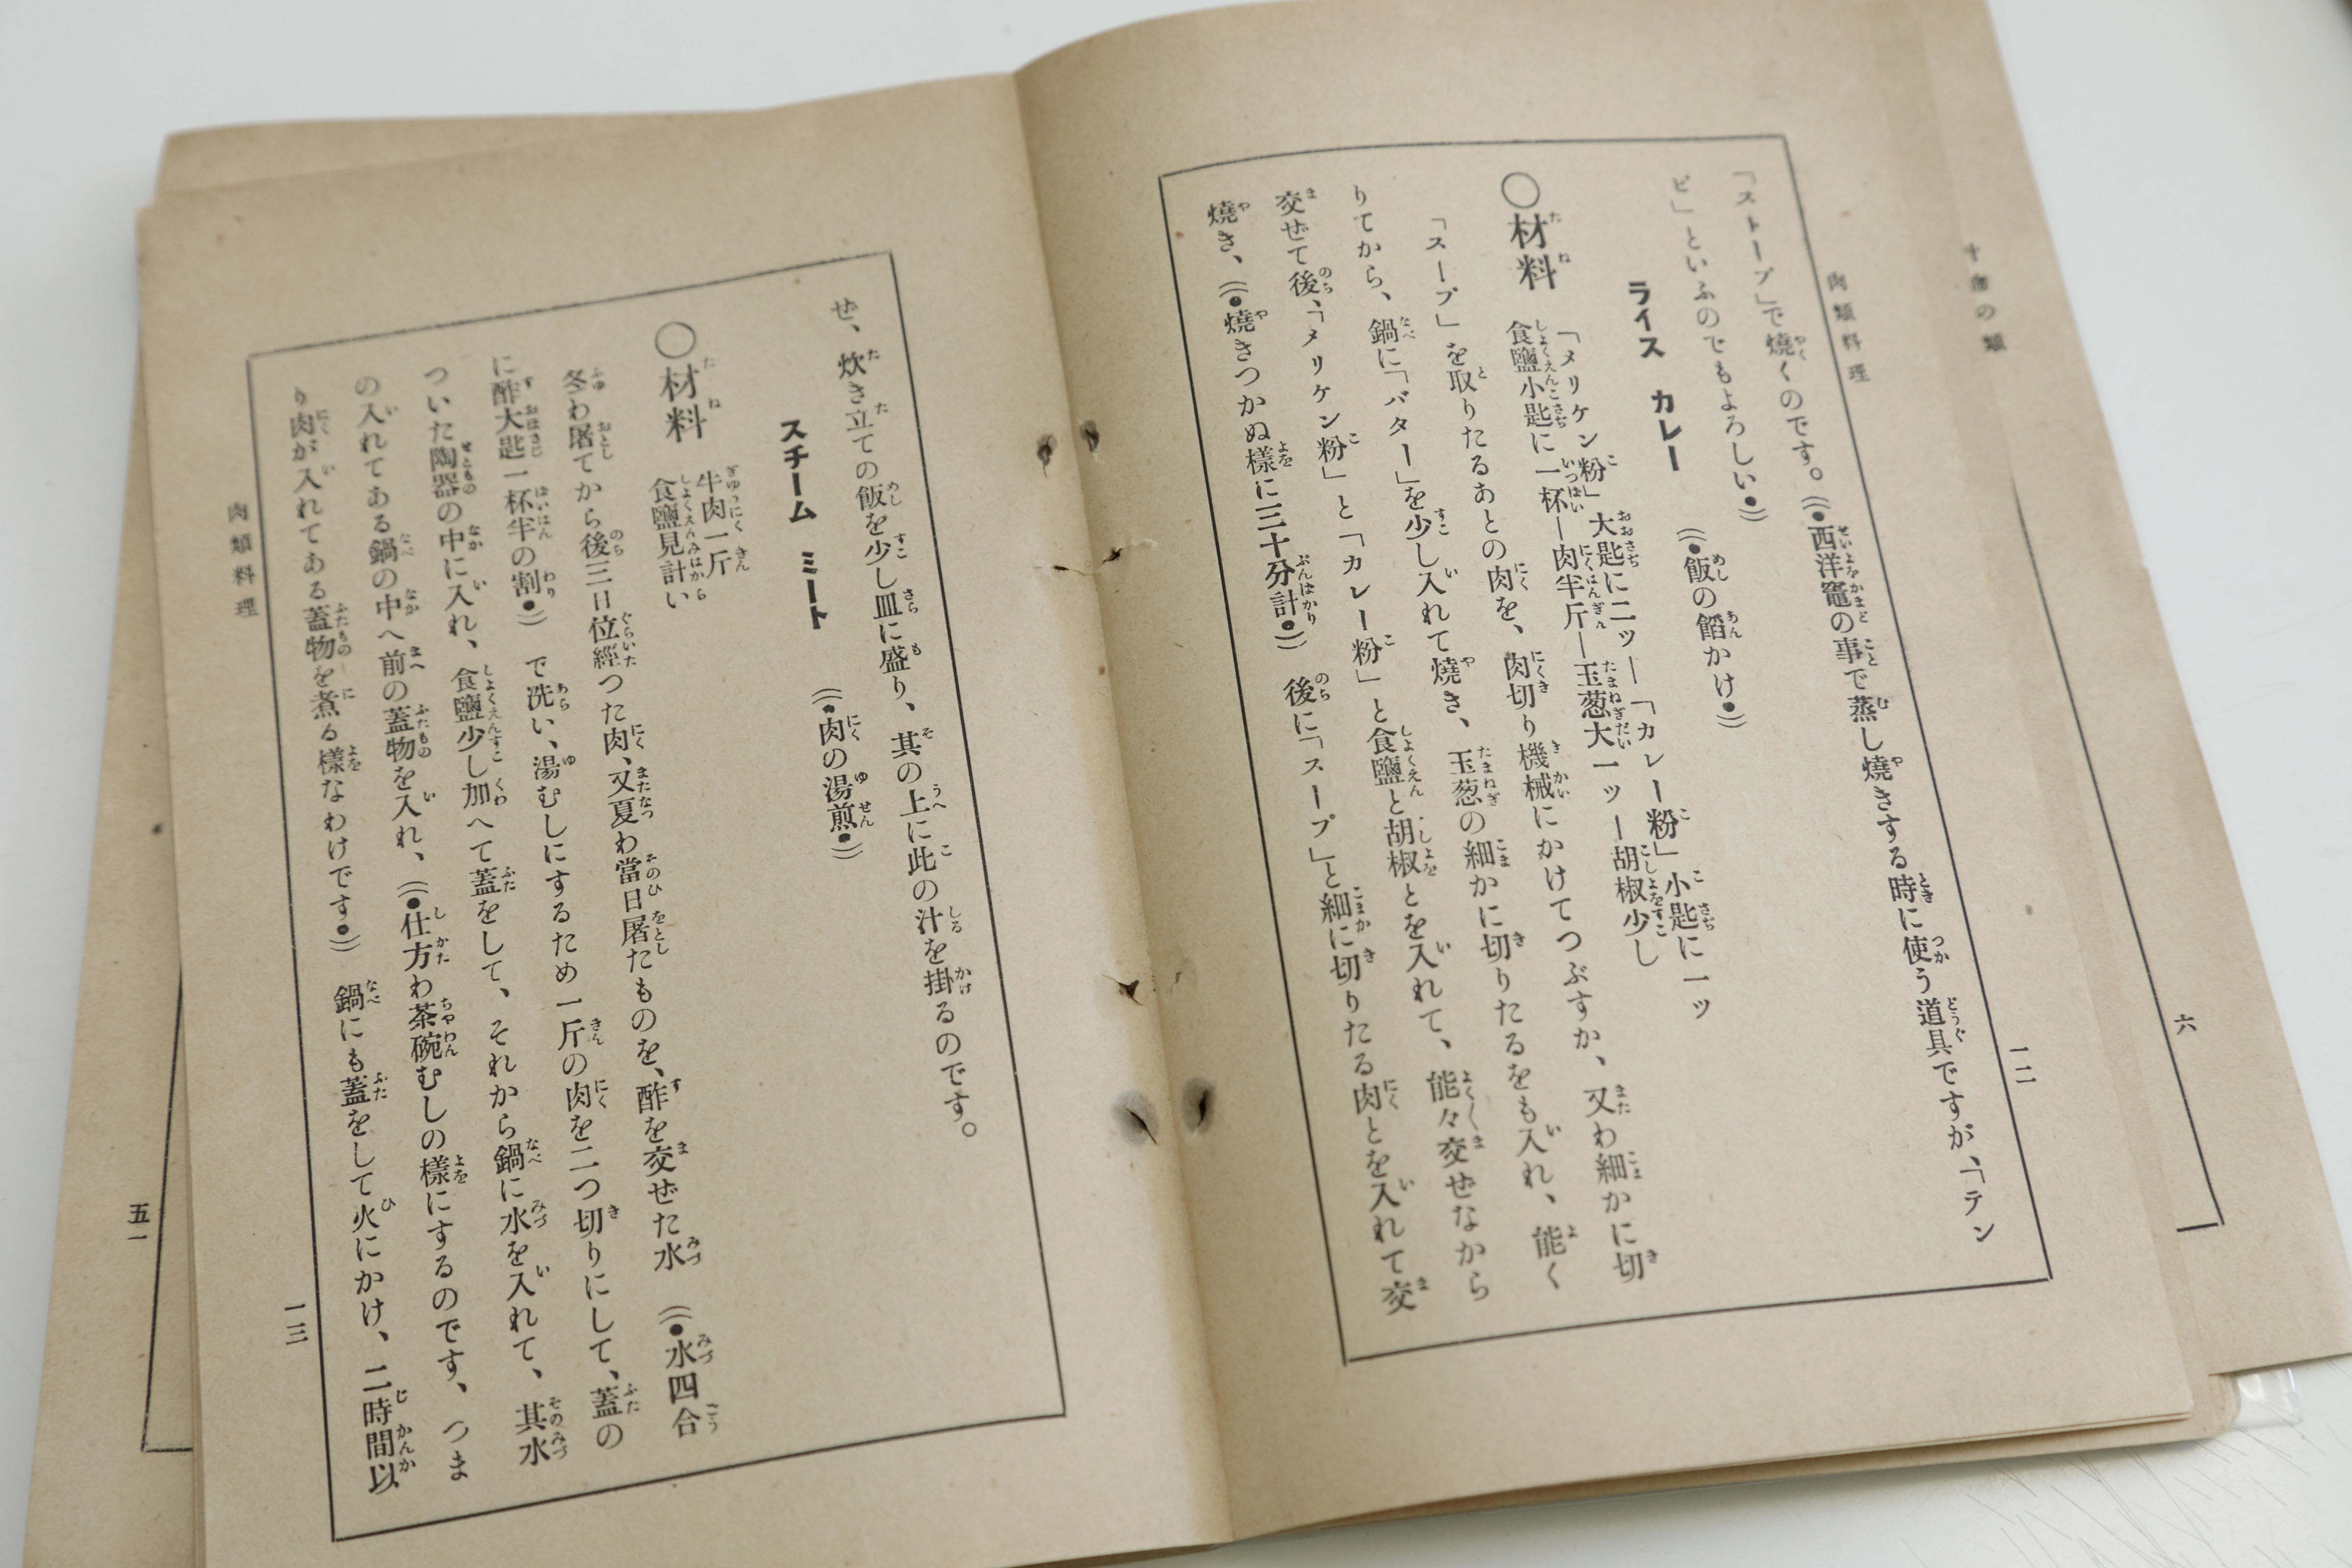 肉類料理
一二
「ストーブ」で燒くのです。((●西洋竈の事で蒸し燒きする時に使う道具ですが、「テン
ピ」といふのでもよろしい●))
ライス カレー ((●飯の餡かけ●))
○材料
「メリケン粉」大匙に二ッ―「カレー粉」小匙に一ッ
食鹽小匙に一杯―肉半斤―玉葱大一ッ―胡椒少し
「スープ」を取りたるあとの肉を、肉切り機械にかけてつぶすか、又わ細かに切
りてから、鍋に「バター」を少し入れて燒き、玉葱の細かに切りたるをも入れ、能く
交ぜて後、「メリケン粉」と「カレー粉」と食鹽と胡椒とを入れて、能々交ぜなから
燒き、((●燒きつかぬ樣に三十分計●)) 後に「スープ」と細に切りたる肉とを入れて交
ぜ、炊き立ての飯を少し皿に盛り、其の上に此の汁を掛るのです。
スチーム ミート ((●肉の湯煎●))
○材料
牛肉一斤
食鹽見計い
冬わ屠てから後三日位經つた肉、又夏わ當日屠たものを、酢を交ぜた水 ((●水四合
に酢大匙一杯半の割●)) で洗い、湯むしにするため一斤の肉を二つ切りにして、蓋の
ついた陶器の中に入れ、食鹽少し加へて蓋をして、それから鍋に水を入れて、其水
の入れてある鍋の中へ前の蓋物を入れ、((●仕方わ茶碗むしの樣にするのです、つま
り肉が入れてある蓋物を煮る樣なわけです●)) 鍋にも蓋をして火にかけ、二時間以
肉類料理
一三
の類
六
五一